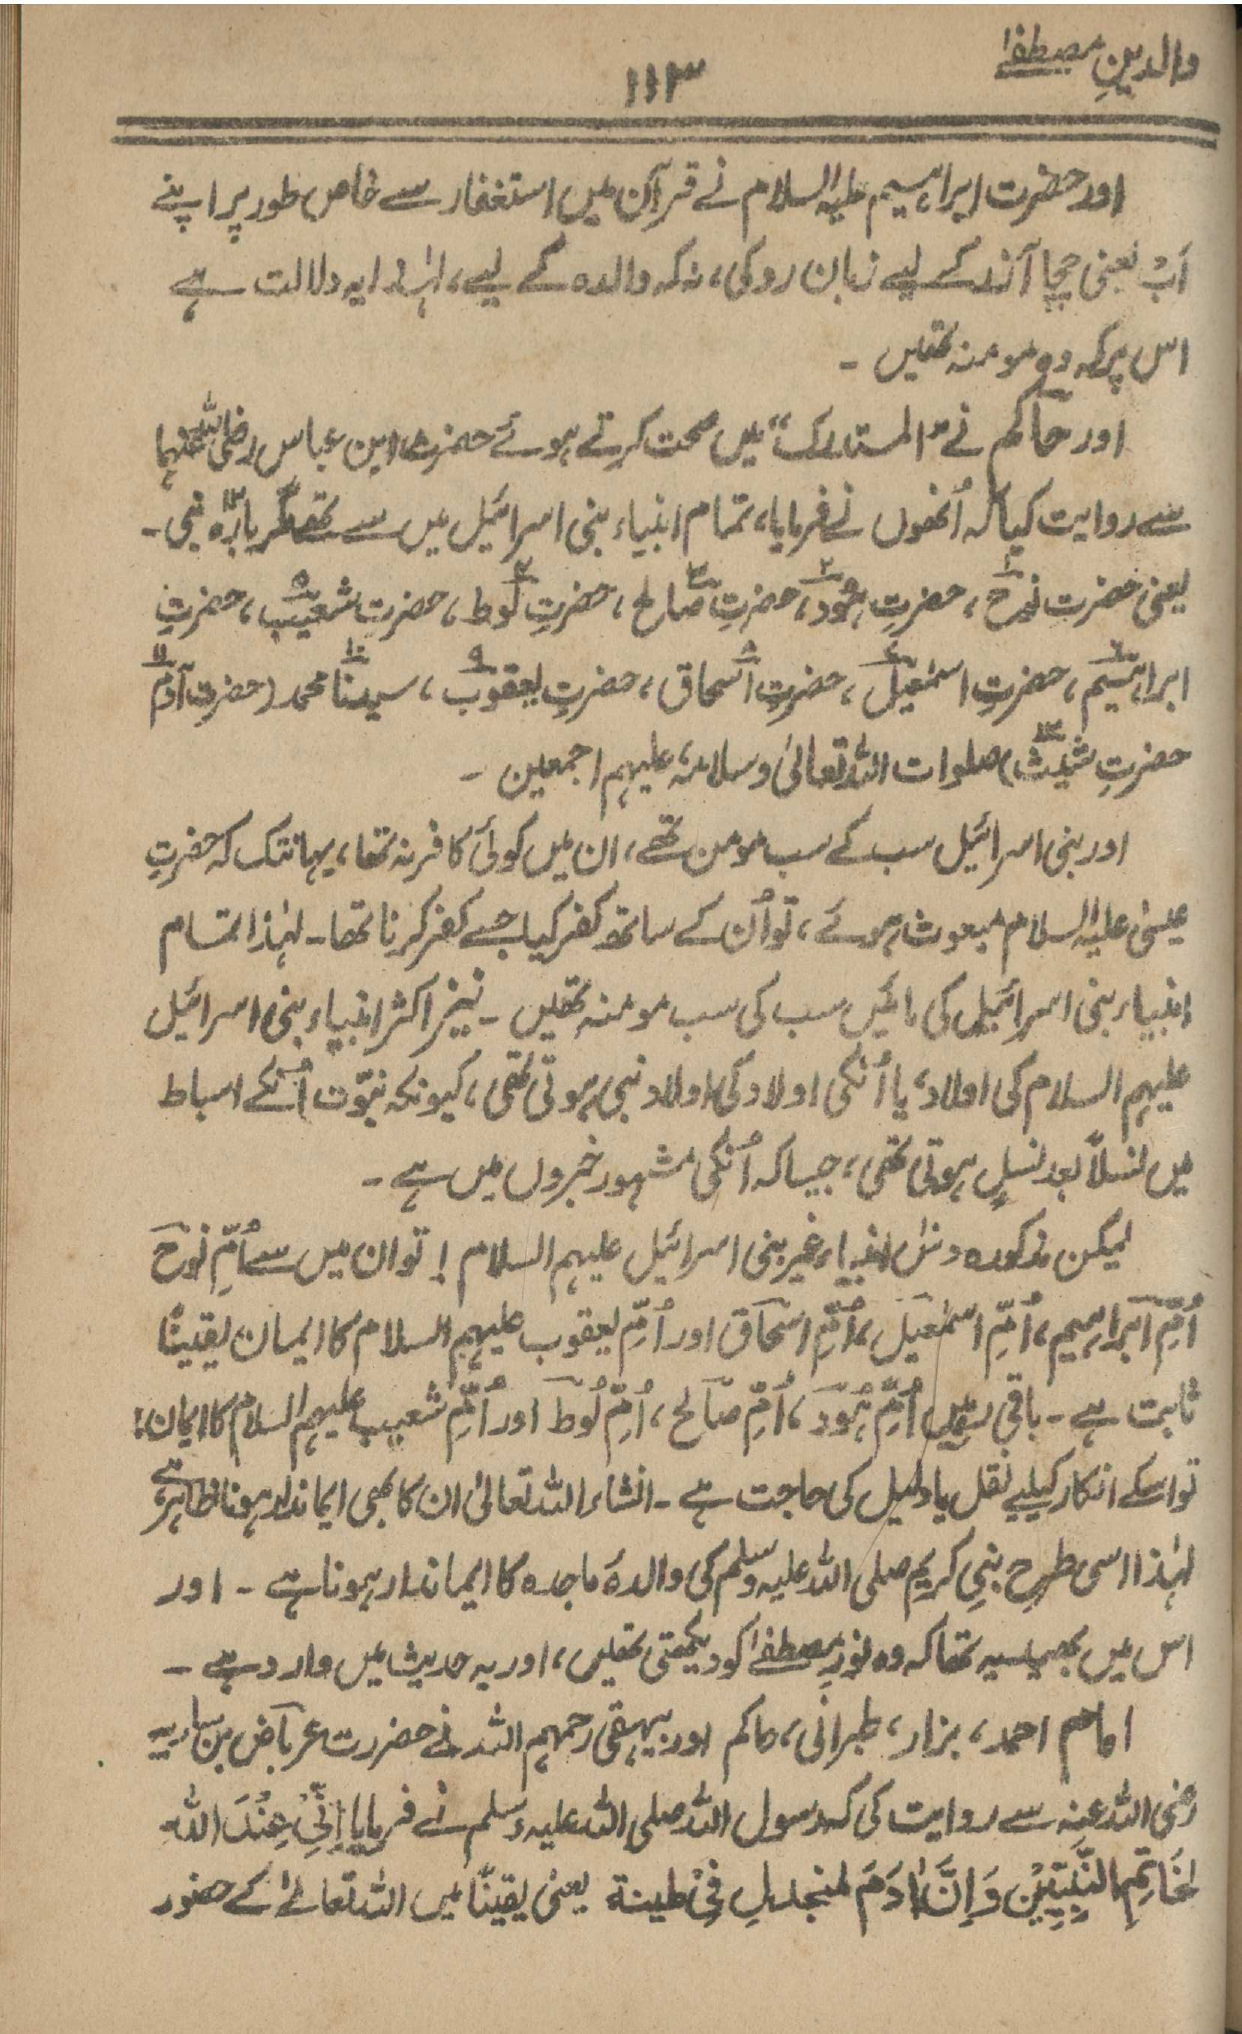 والدینِ مصطفےٰ
۱۱۳
اور حضرت ابراہیم علیہ السلام نے قرآن میں استغفار سے خاص طور پر اپنے
اَبْ یعنی چچا آزر کے لیے زبان روکی، نہ کہ والدہ کے لیے، لہٰذا یہ دلالت ہے
اس پر کہ وہ مومنہ تھیں ۔
اور حاکم نے ”المستدرک“ میں صحت کرتے ہوئے حضرت ابن عباس رضی اللہ عنہما
سے روایت کیا کہ اُنھوں نے فرمایا، تمام انبیاء بنی اسرائیل میں سے تھے مگر بارہ نبی ۔
یعنی حضرت نوح ۱، حضرتِ ہود ۲، حضرتِ صالح ۳، حضرتِ لوط ۴، حضرت شعیب ۵، حضرتِ
ابراہیم ۶، حضرتِ اسمٰعیل ۷، حضرتِ اسحاق ۸، حضرتِ یعقوب ۹، سیدنا محمد ۱۰ (حضرت آدم ۱۱
حضرتِ شیث ۱۲) صلوات اللہ تعالیٰ وسلامہٗ علیہم اجمعین ۔
اور بنی اسرائیل سب کے سب مومن تھے، ان میں کوئی کافر نہ تھا، یہانتک کہ حضرتِ
عیسیٰ علیہ السلام مبعوث ہوئے، تو اُن کے ساتھ کفر کیا جسے کفر کرنا تھا۔ لہٰذا تمام
انبیاء بنی اسرائیل کی مائیں سب کی سب مومنہ تھیں ۔ نیز اکثر انبیاء بنی اسرائیل
علیہم السلام کی اولاد، یا اُنکی اولاد کی اولاد نبی ہوتی تھی، کیونکہ نبوّت اُنکے اسباط
میں نسلاً بعد نسلٍ ہوتی تھی، جیسا کہ اُنکی مشہور خبروں میں ہے ۔
لیکن مذکورہ دس انبیاء غیر بنی اسرائیل علیہم السلام ! تو ان میں سے اُمِّ نوح
اُمِّ ابراہیم، اُمِّ اسمٰعیل، اُمِّ اسحاق اور اُمِّ یعقوب علیہم السلام کا ایمان یقیناً
ثابت ہے ۔ باقی رہیں اُمِّ ہُود، اُمِّ صالح، اُمِّ لُوط اور اُمِّ شعیب علیہم السلام کا ایمان!
تو اسکے انکار کیلیے نقل یا دلیل کی حاجت ہے ۔ انشاء اللہ تعالیٰ ان کا بھی ایماندار ہونا ظاہر ہے
لہٰذا اسی طرح نبیِ کریم صلی اللہ علیہ وسلم کی والدۂ ماجدہ کا ایماندار ہونا ہے ۔ اور
اس میں بھید یہ تھا کہ وہ نورِ مصطفےٰ کو دیکھتی تھیں، اور یہ حدیث میں وارد ہے ۔
امام احمد، بزار، طبرانی، حاکم اور بیہقی رحمہم اللہ نے حضرت عرباض بن ساریہ
رضی اللہ عنہ سے روایت کی کہ رسول اللہ صلی اللہ علیہ وسلم نے فرمایا اِنِّیْ عِنْدَ اللّٰہِ
لَخَاتِمِ النَّبِیِّیْن وَاِنَّ اٰدَمَ لمنجدلِ فِیْ طینۃ یعنی یقیناً میں اللہ تعالےٰ کے حضور